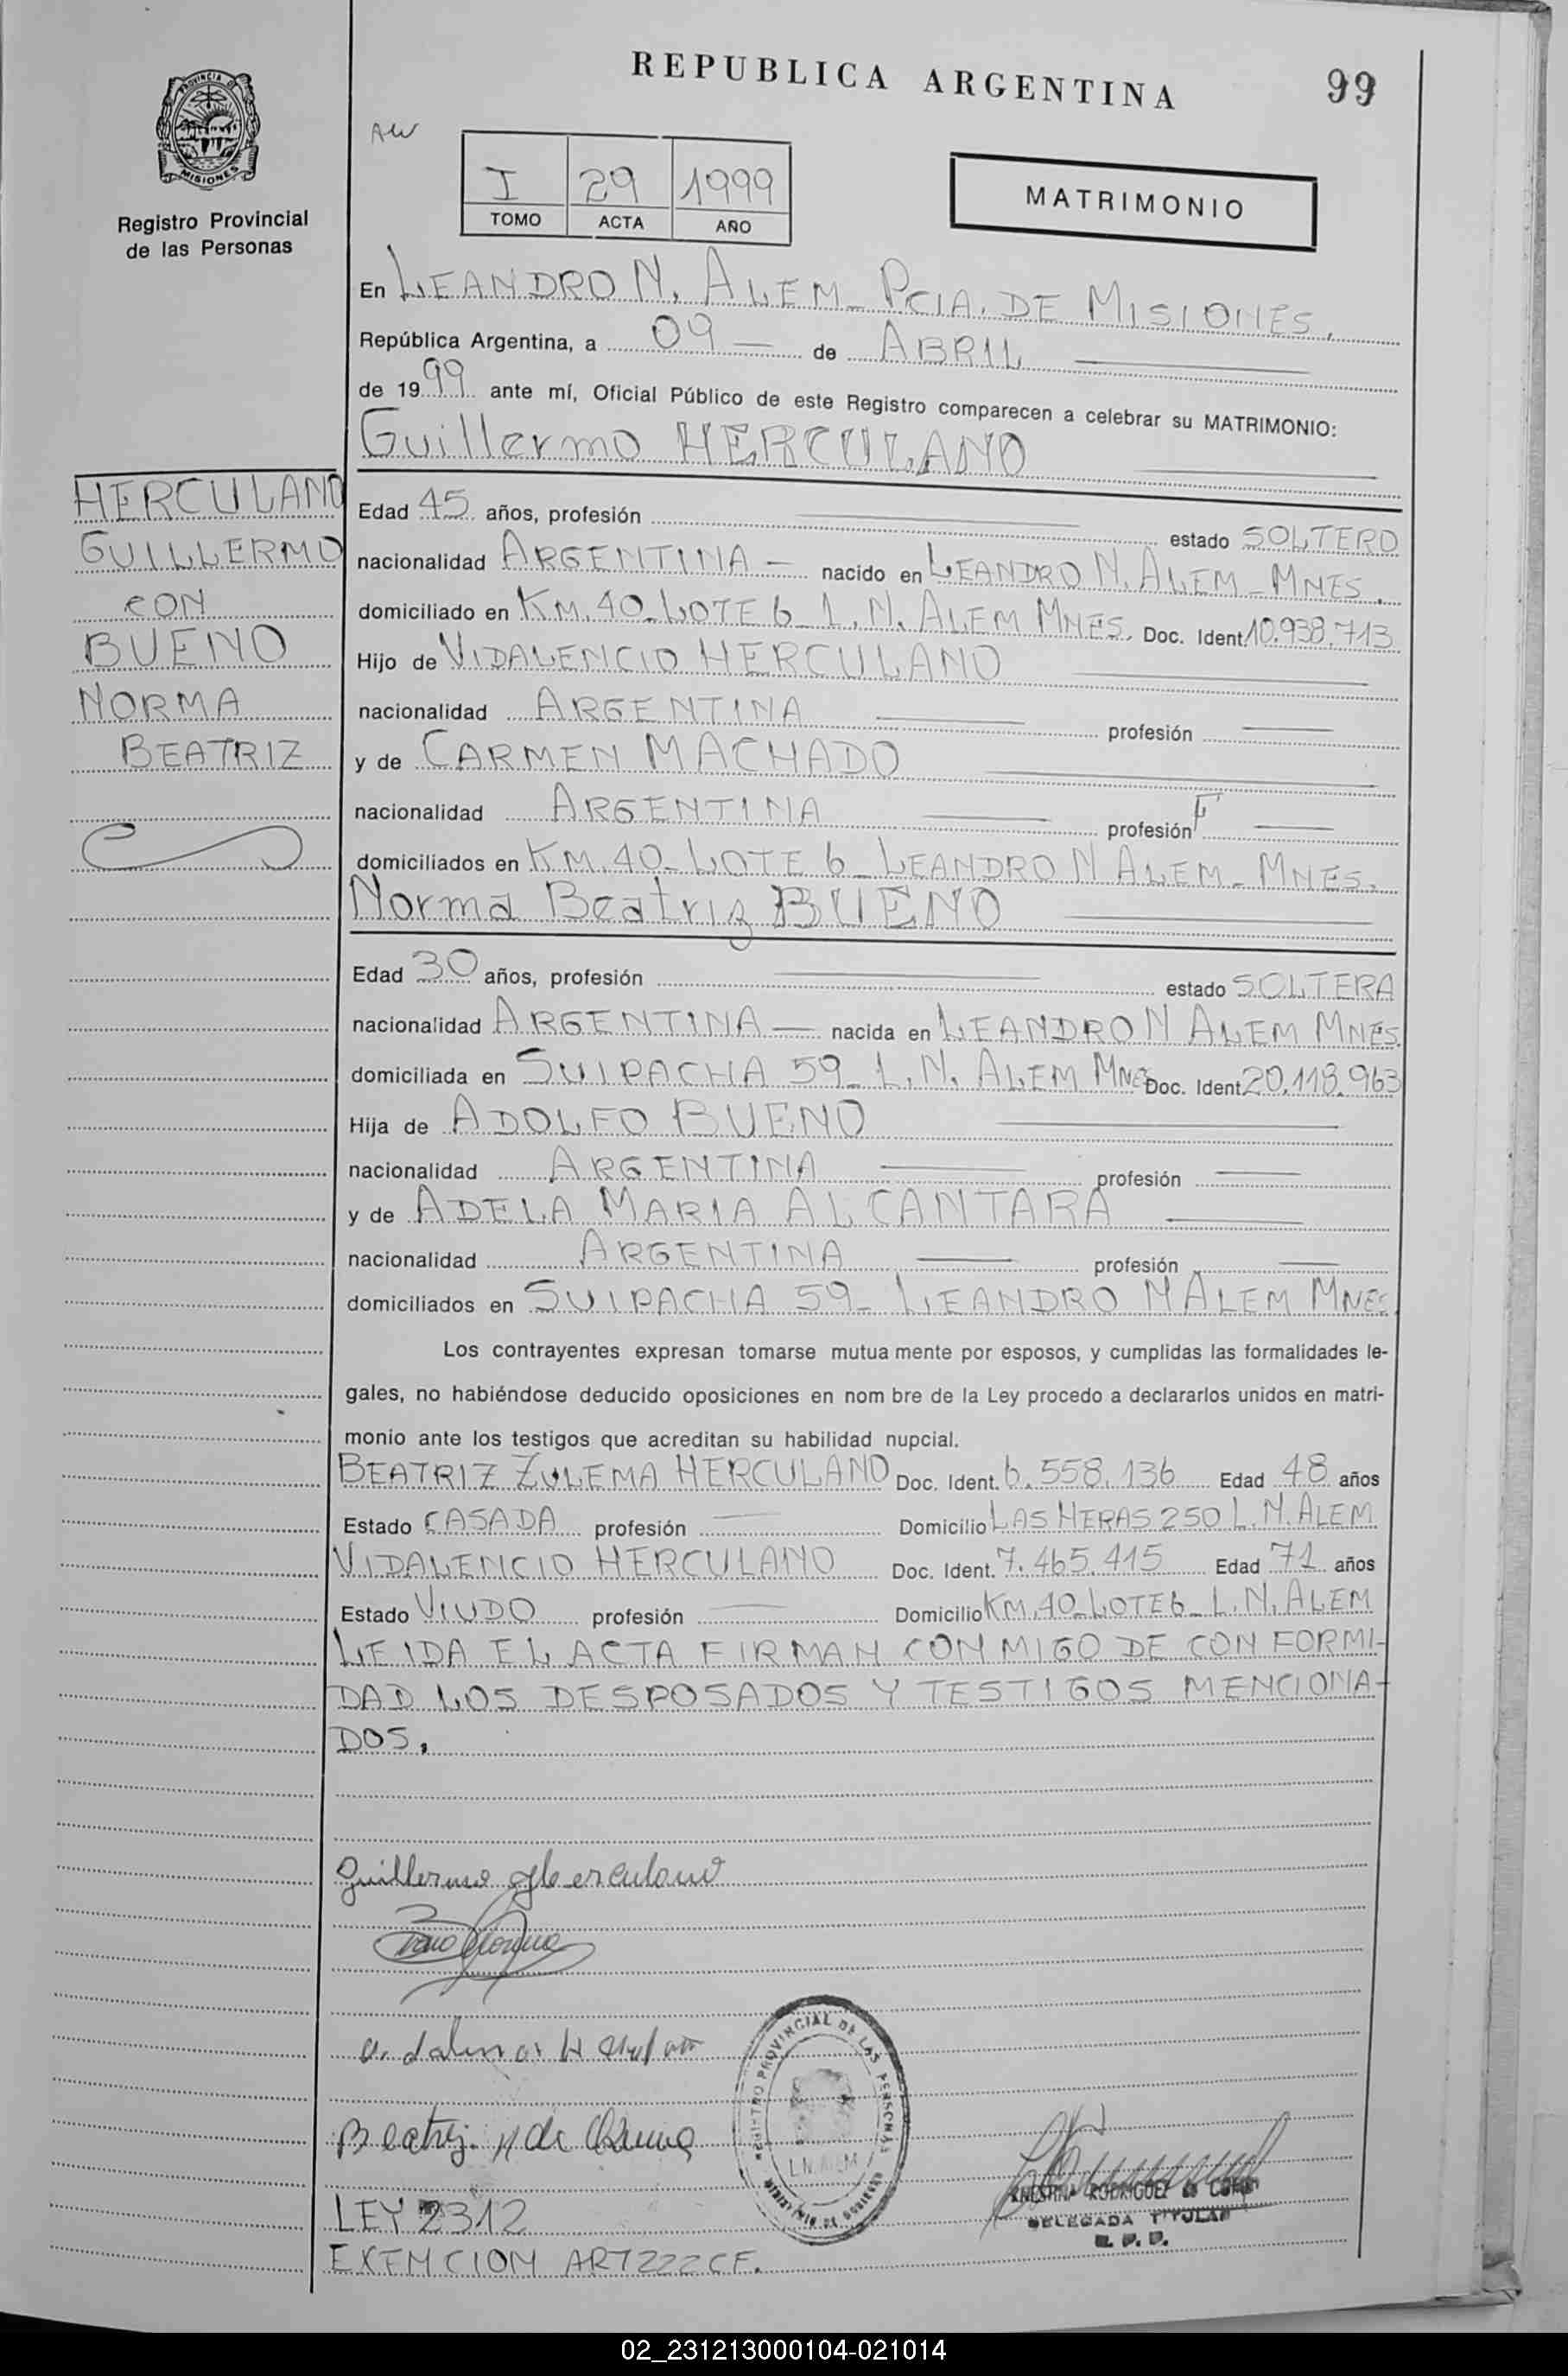 REPUBLICA ARGENTINA
99
PROVINCIA DE
MISIONES
Registro Provincial
de las Personas
I 29 1999
TOMO ACTA AÑO
MATRIMONIO
En LEANDRO N. ALEM - PCIA. DE MISIONES.
República Argentina, a 09 — de ABRIL
de 1999 ante mí, Oficial Público de este Registro comparecen a celebrar su MATRIMONIO:
Guillermo HERCULANO
HERCULANO
GUILLERMO
CON
BUENO
NORMA
BEATRIZ
Edad 45 años, profesión estado SOLTERO
nacionalidad ARGENTINA — nacido en LEANDRO N. ALEM - MNES.
domiciliado en KM. 40 - LOTE 6 - L. N. ALEM MNES. Doc. Ident. 10.938.713
Hijo de VIDALENCIO HERCULANO
nacionalidad ARGENTINA profesión
y de CARMEN MACHADO
nacionalidad ARGENTINA profesión
domiciliados en KM. 40 - LOTE 6 - LEANDRO N ALEM - MNES.
Norma Beatriz BUENO
Edad 30 años, profesión estado SOLTERA
nacionalidad ARGENTINA — nacida en LEANDRO N ALEM MNES.
domiciliada en SUIPACHA 59 - L. N. ALEM MNES Doc. Ident. 20.118.963
Hija de ADOLFO BUENO
nacionalidad ARGENTINA profesión
y de ADELA MARIA ALCANTARA
nacionalidad ARGENTINA profesión
domiciliados en SUIPACHA 59 - LEANDRO N ALEM MNES.
Los contrayentes expresan tomarse mutua mente por esposos, y cumplidas las formalidades le-
gales, no habiéndose deducido oposiciones en nom bre de la Ley procedo a declararlos unidos en matri-
monio ante los testigos que acreditan su habilidad nupcial.
BEATRIZ ZULEMA HERCULANO Doc. Ident. 6.558.136 Edad 48 años
Estado CASADA profesión Domicilio LAS HERAS 250 L. N. ALEM
VIDALENCIO HERCULANO Doc. Ident. 7.465.415 Edad 71 años
Estado VIUDO profesión Domicilio KM. 40 - LOTE 6 - L. N. ALEM
LEIDA EL ACTA FIRMAN CONMIGO DE CONFORMI-
DAD LOS DESPOSADOS Y TESTIGOS MENCIONA-
DOS.
Guillermo Herculano
REGISTRO PROVINCIAL DE LAS PERSONAS
L.N. ALEM
MINISTERIO DE GOBIERNO
Beatriz H de
RODRIGUEZ de
DELEGADA TITULAR
R. P. P.
LEY 2312
EXENCION ART 222 CF.
02_231213000104-021014